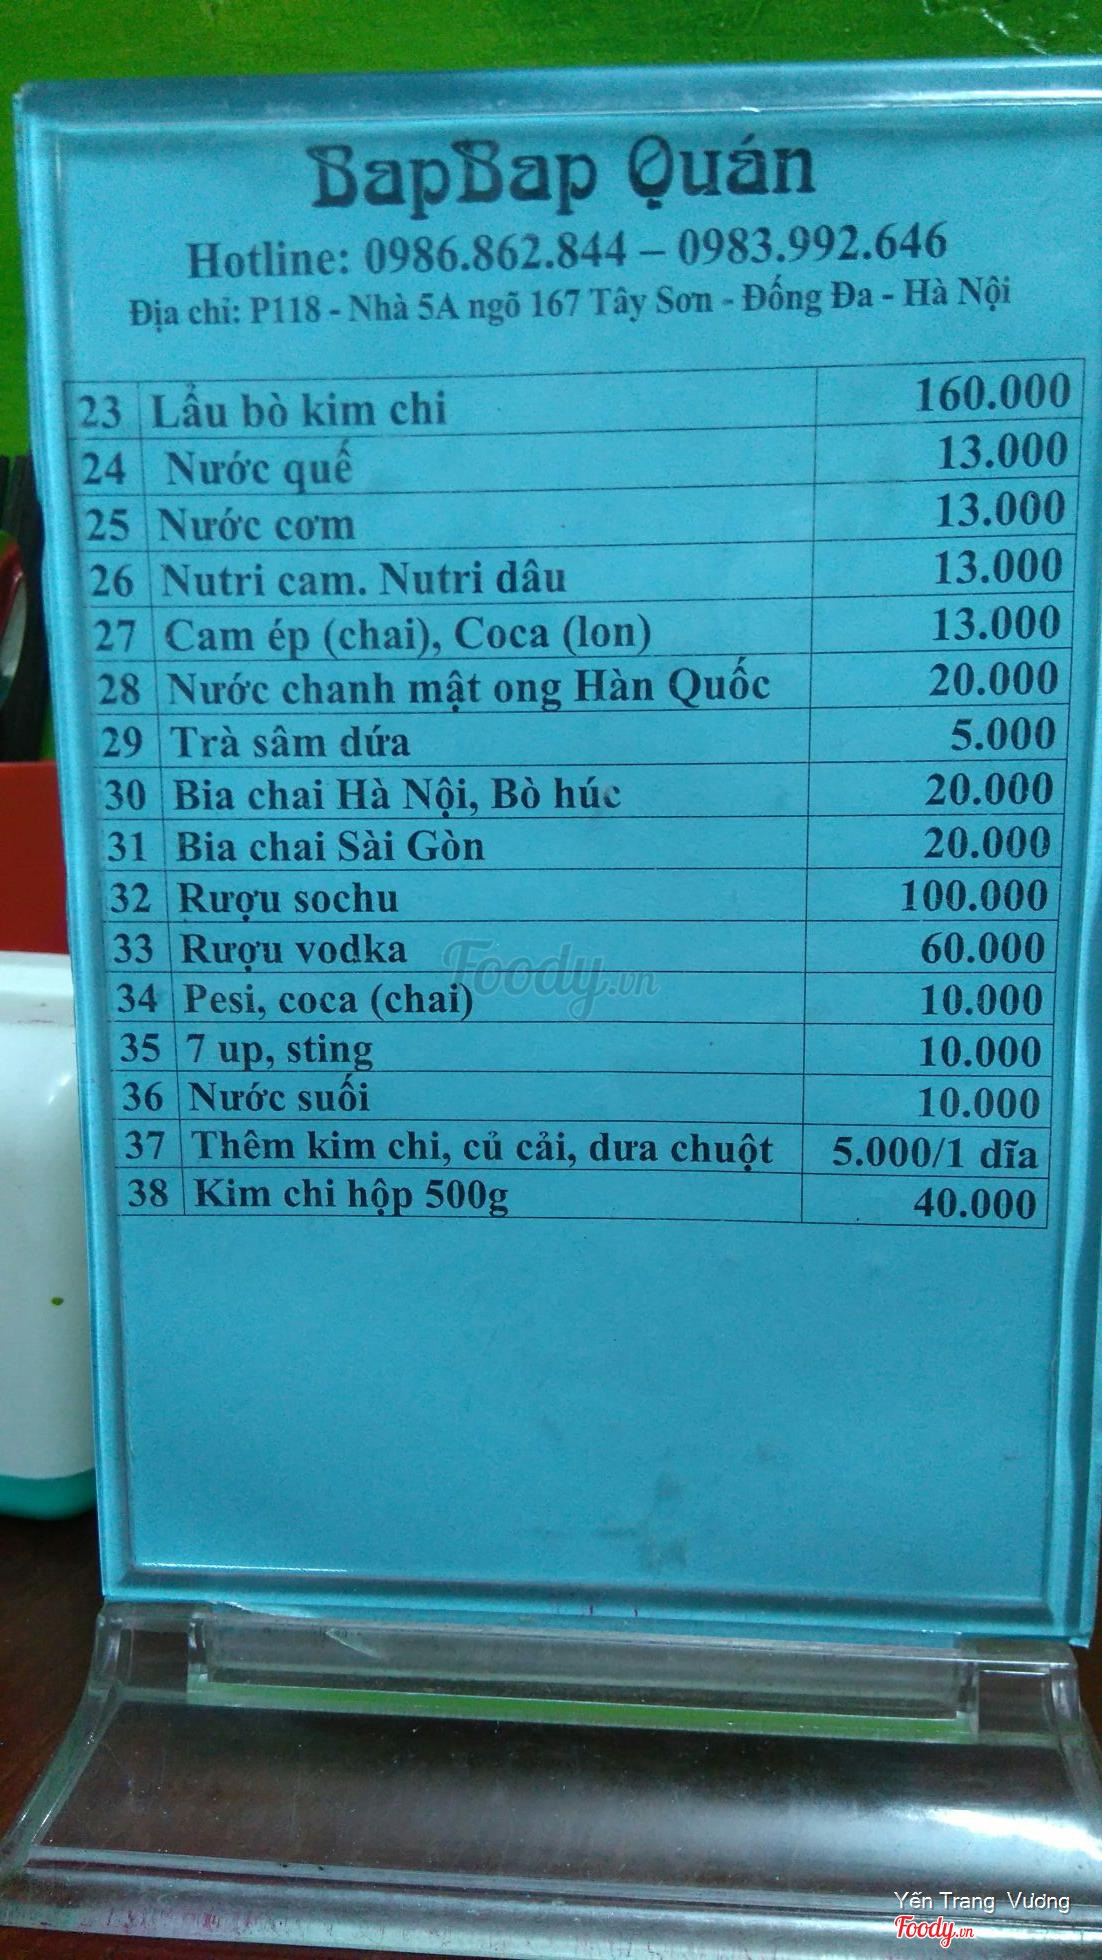 BapBap Quán
Hotline: 0986.862.844 – 0983.992.646
Địa chỉ: P118 - Nhà 5A ngõ 167 Tây Sơn - Đống Đa - Hà Nội
23 Lẩu bò kim chi 160.000
24 Nước quế 13.000
25 Nước cơm 13.000
26 Nutri cam. Nutri dâu 13.000
27 Cam ép (chai), Coca (lon) 13.000
28 Nước chanh mật ong Hàn Quốc 20.000
29 Trà sâm dứa 5.000
30 Bia chai Hà Nội, Bò húc 20.000
31 Bia chai Sài Gòn 20.000
32 Rượu sochu 100.000
33 Rượu vodka 60.000
Foody.vn
34 Pesi, coca (chai) 10.000
35 7 up, sting 10.000
36 Nước suối 10.000
37 Thêm kim chi, củ cải, dưa chuột 5.000/1 dĩa
38 Kim chi hộp 500g 40.000
Yến Trang Vương
Foody.vn